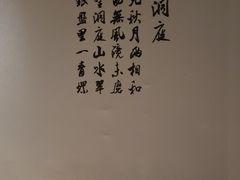 洞庭
光秋月兩相和
面無風鏡未磨
望洞庭山水翠
銀盤里一青螺